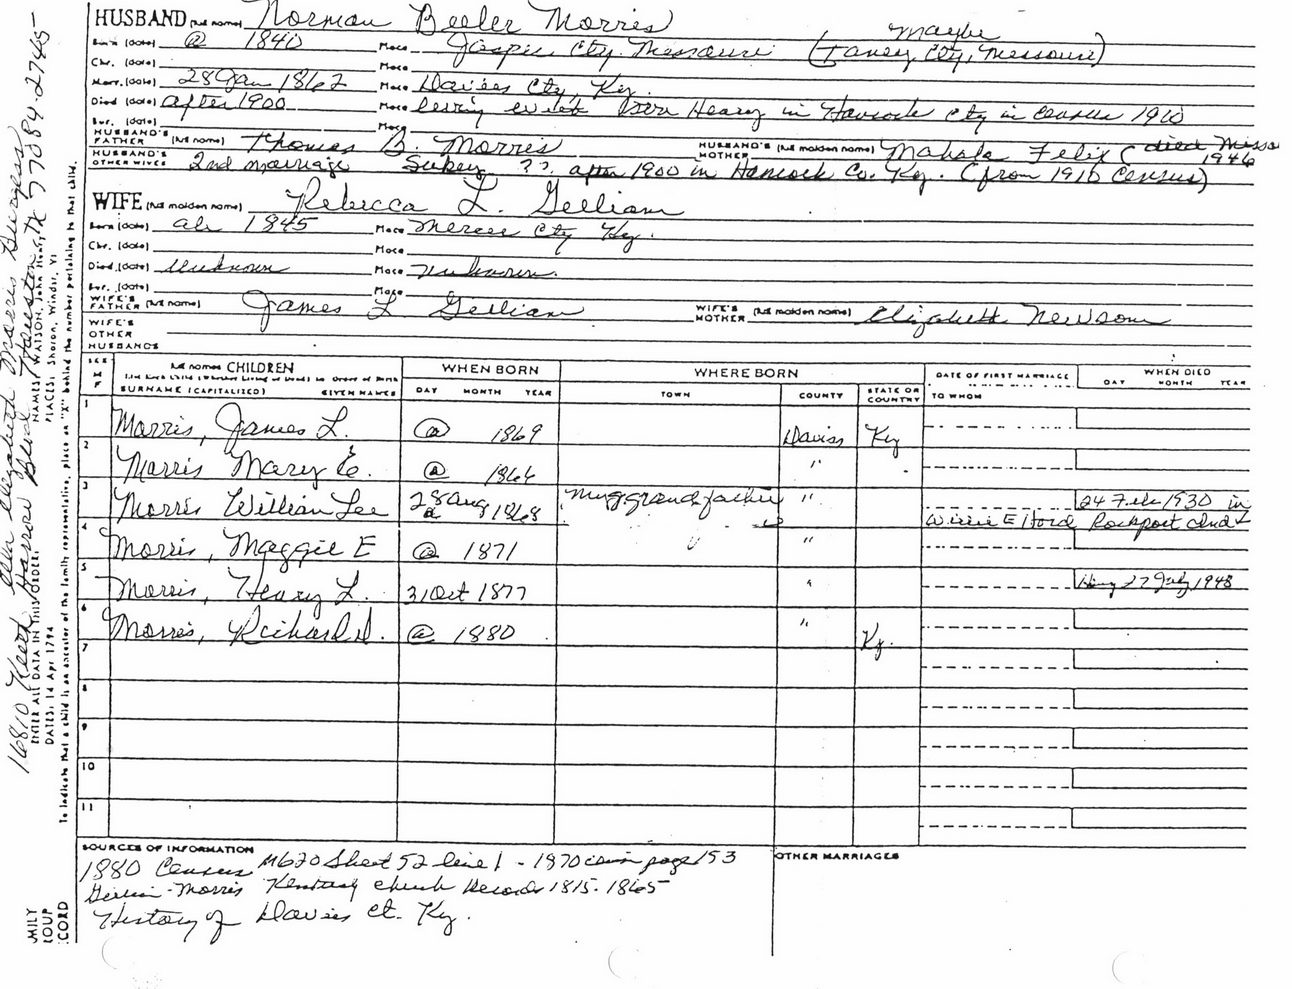 HUSBAND (full name) Norman Beeler Morris
Born (date) @ 1840 Place Jasper Cty. Missouri (Taney Cty, Missouri) Maybe
Chr. (date) Place
Marr. (date) 28 Jan 1862 Place Daviess Cty, Ky.
Died (date) after 1900 Place living with son Henry in Hancock Cty in Census 1910
Bur. (date) Place
HUSBAND'S FATHER (full name) Thomas B. Morris HUSBAND'S MOTHER (full maiden name) Mahala Felix (died Misso 1946
HUSBAND'S OTHER WIVES 2nd marriage Sukey ?? after 1900 in Hancock Co. Ky. (from 1910 Census)
WIFE (full maiden name) Rebecca L. Gilliam
Born (date) ab 1845 Place Mercer Cty Ky.
Chr. (date) Place
Died (date) Unknown Place unknown
Bur. (date) Place
WIFE'S FATHER (full name) James L Gilliam WIFE'S MOTHER (full maiden name) Elizabeth Newsom
WIFE'S OTHER HUSBANDS
SEX M F
full names CHILDREN
List Each Child (Whether Living or Dead) in Order of Birth
SURNAME (CAPITALIZED) GIVEN NAMES
WHEN BORN DAY MONTH YEAR
WHERE BORN TOWN COUNTY STATE OR COUNTRY
DATE OF FIRST MARRIAGE TO WHOM
WHEN DIED DAY MONTH YEAR
1 Morris, James L. @ 1869 Daviess Ky
2 Morris Mary E. @ 1866 " "
3 Morris William Lee 28 Aug 1868 my grandfather " 24 Feb 1930 in
Willie E Ford Rockport Ind
4 Morris, Maggie E @ 1871 "
5 Morris, Henry L. 31 Oct 1877 " 27 July 1948
6 Morris, Richard D. @ 1880 " Ky.
7
8
9
10
11
SOURCES OF INFORMATION
OTHER MARRIAGES
1880 Census M620 Sheet 52 line 1 - 1870 page 153
Gilliam-Morris Kentucky church Records 1815-1865
History of Daviess Ct. Ky.
16810 Keith Harrow Blvd Houston, TX 77084-2745
Ella Elizabeth Morris Burgess
ENTER ALL DATA IN THIS ORDER:
NAMES: WATSON, John Henry
PLACES: Sharon, Windsr, Vt
DATES: 14 Apr 1794
To indicate that a child is an ancestor of the family representative, place an "X" behind the number pertaining to that child.
MILY
ROUP
CORD